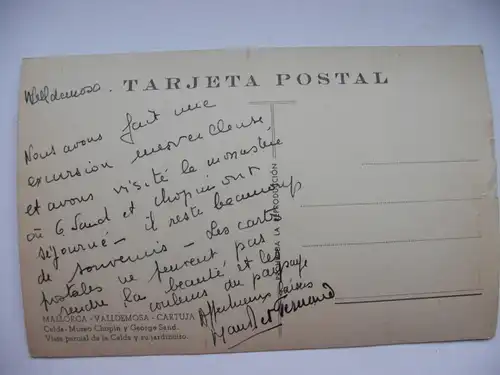 TARJETA POSTAL
Valldemosa.
Nous avons fait une
excursion merveilleuse,
et avons visité le monastère
où G Sand et Chopin ont
séjourné - il reste beaucoup
de souvenirs - Les cartes
postales ne peuvent pas
rendre la beauté et les
couleurs du paysage
Affectueux baisers
et Fernand
PROHIBIDA LA REPRODUCCIÓN
MALLORCA - VALLDEMOSA - CARTUJA
Celda-Museo Chopin y George Sand.
Vista parcial de la Celda y su jardincito.